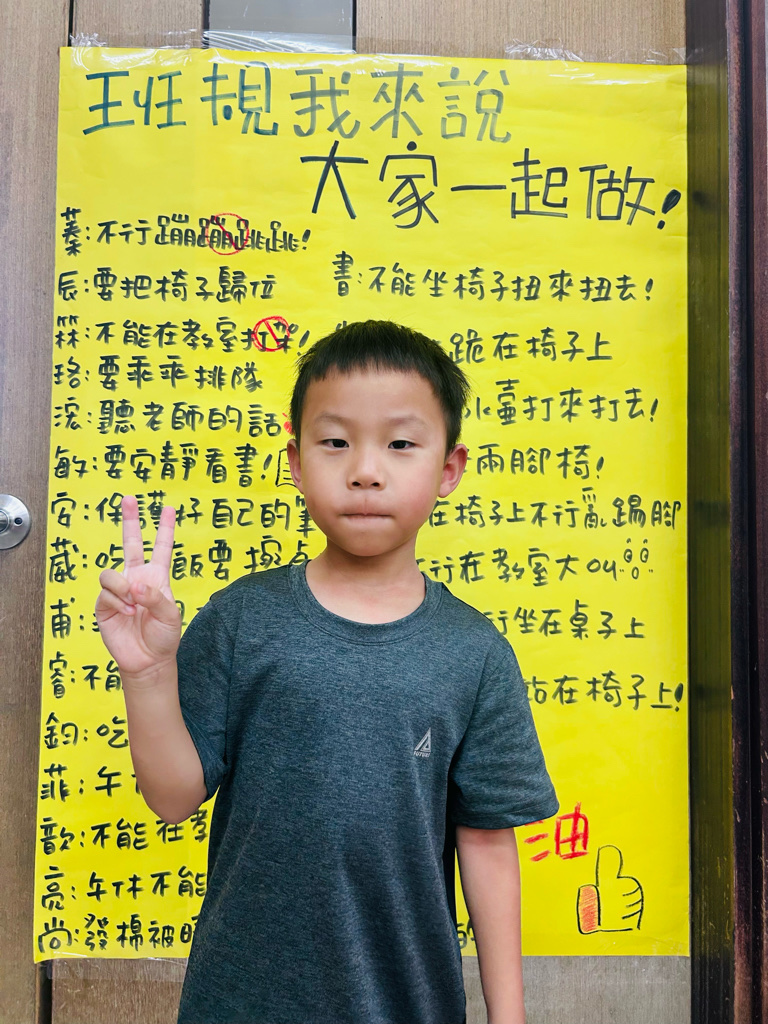 班規我來說
大家一起做!
蓁:不行蹦蹦跳跳!
辰:要把椅子歸位
書:不能坐椅子扭來扭去!
霖:不能在教室打架!
跪在椅子上
珞:要乖乖排隊
水壺打來打去!
浤:聽老師的話
敏:要安靜看書!
兩腳椅!
安:保護好自己的筆
在椅子上不行亂踢腳
葳:吃完飯要擦桌
行在教室大叫
甫:
行坐在桌子上
睿:不能
站在椅子上!
鈞:吃
菲:午
歆:不能在教
油
亮:午休不能
尚:發棉被時
FUTURE